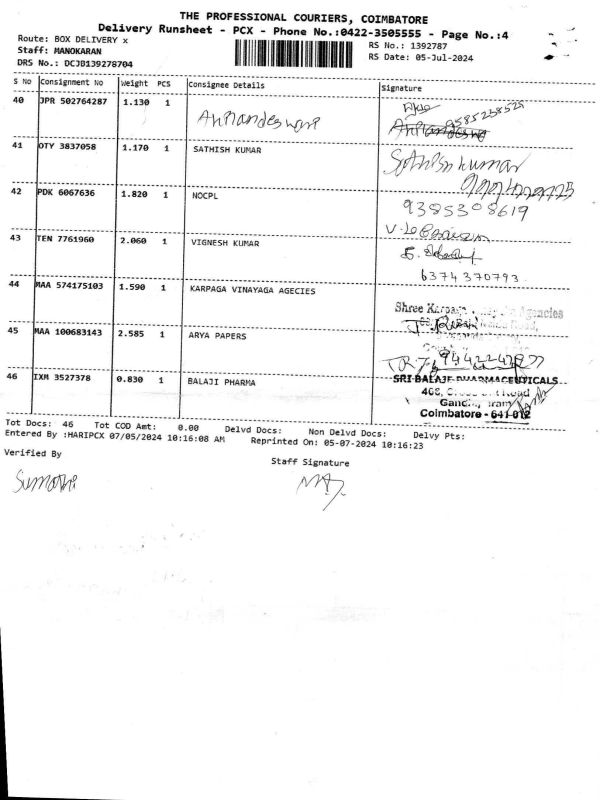 THE PROFESSIONAL COURIERS, COIMBATORE
Delivery Runsheet - PCX - Phone No.:0422-3505555 - Page No.:4
Route: BOX DELIVERY x
RS No.: 1392787
Staff: MANOKARAN
RS Date: 05-Jul-2024
DRS No.: DCJB139278704
S No Consignment No Weight PCS Consignee Details Signature
40 JPR 502764287 1.130 1
41 OTY 3837058 1.170 1 SATHISH KUMAR
Sathish kumar
42 PDK 6067636 1.820 1 NOCPL
9385308619
43 TEN 7761960 2.060 1 VIGNESH KUMAR
6374370793
44 MAA 574175103 1.590 1 KARPAGA VINAYAGA AGECIES
Shree Agencies
45 MAA 100683143 2.585 1 ARYA PAPERS
46 IXM 3527378 0.830 1 BALAJI PHARMA
SRI BALAJI PHARMACEUTICALS
Road
Coimbatore - 641 012
Tot Docs: 46 Tot COD Amt: 0.00 Delvd Docs: Non Delvd Docs: Delvy Pts:
Entered By :HARIPCX 07/05/2024 10:16:08 AM Reprinted On: 05-07-2024 10:16:23
Verified By
Staff Signature
Sumathi